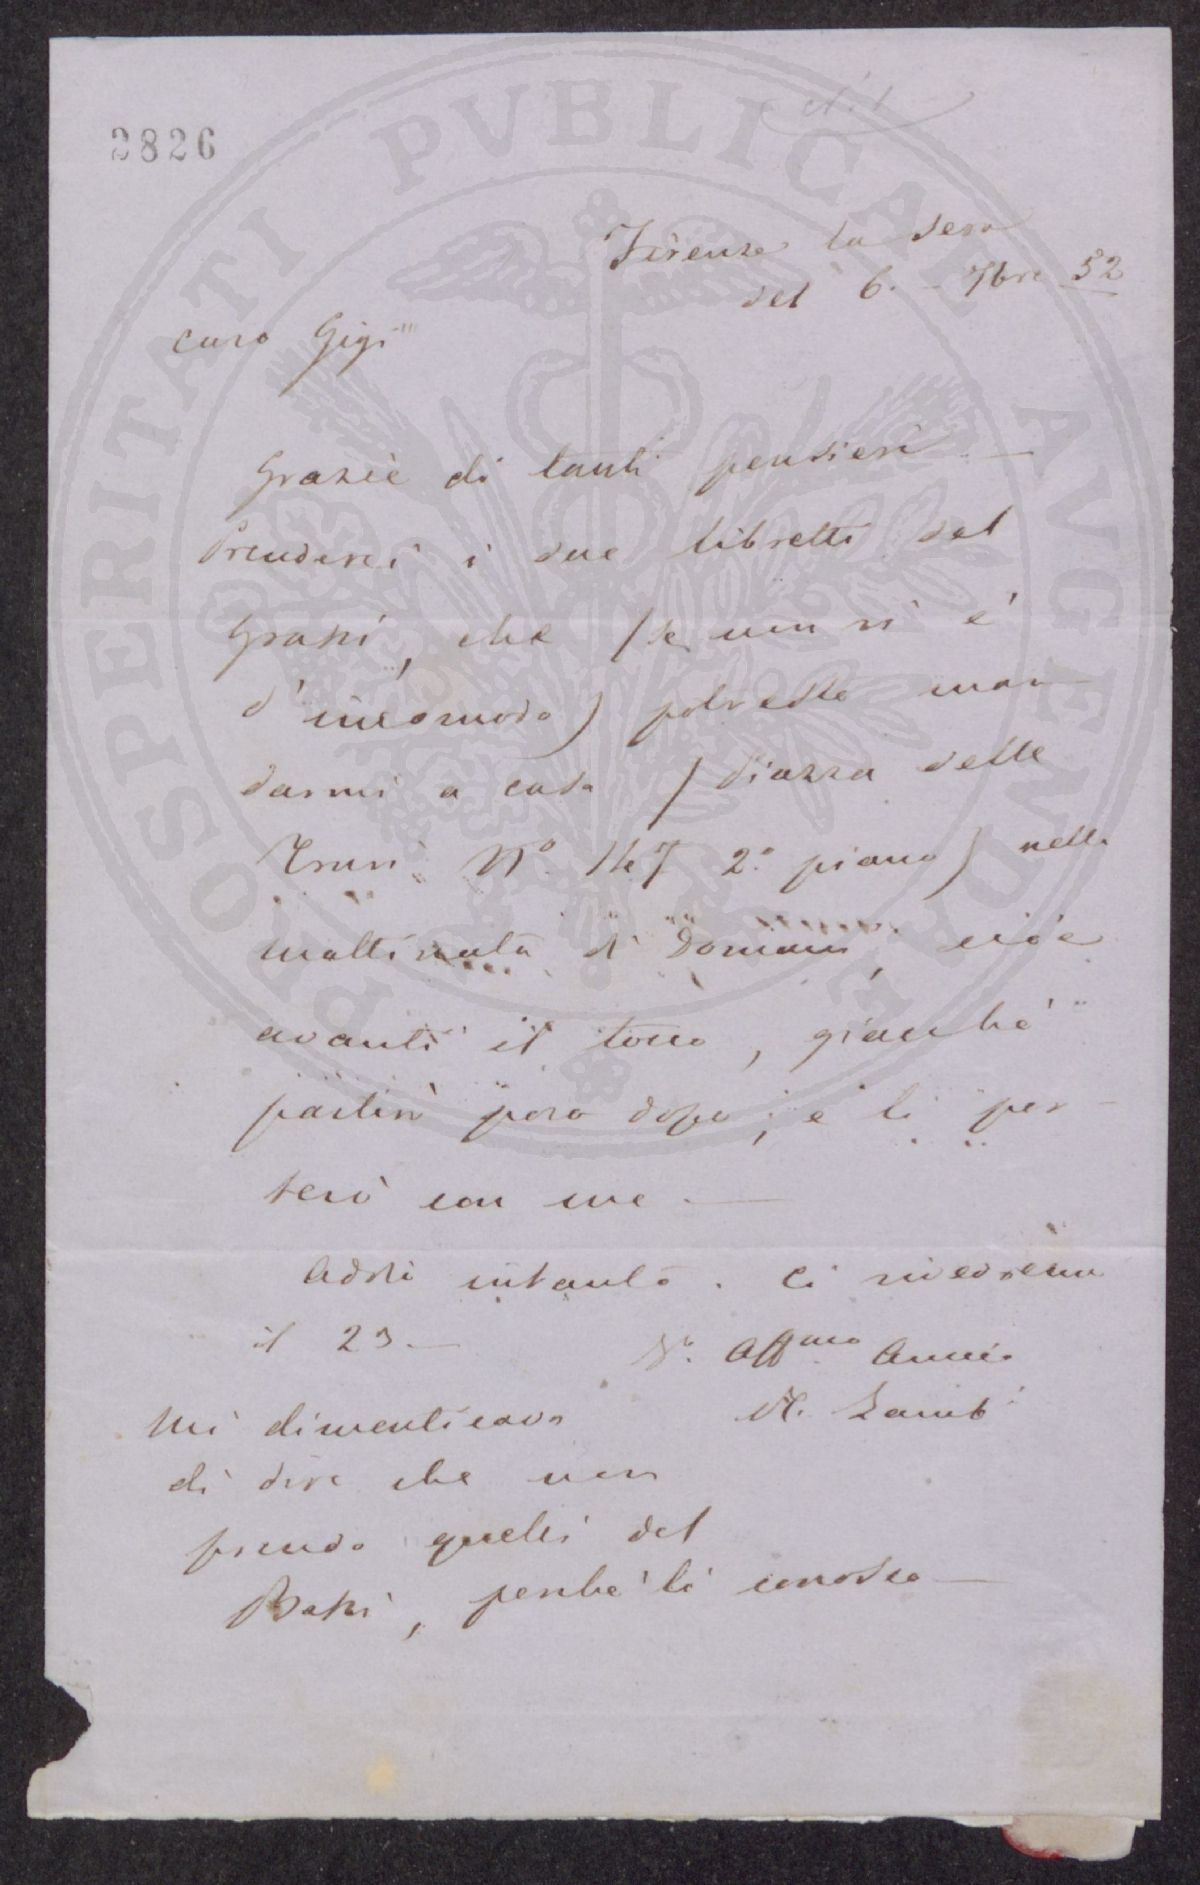 2826
Firenze la sera
del 6. 7bre 52
Caro Gigi
Grazie di tanti pensieri —
Prenderei i due libretti del
Grassi, che (se non vi è
d'incomodo) potreste man-
darmi a casa (Piazza delle
Travi N.° 147 2.° piano) nella
mattinata di Domani, cioè
avanti il tocco, giacché
partirò poco dopo; e li por-
terò con me. —
Addio intanto. Ci rivedremo
il 23. —
V.° Affmo Amico
Mi dimenticavo
di dire che non
prendo quelli del
perché li conosco —
PROSPERITATI PVBLICAE AVGENDAE